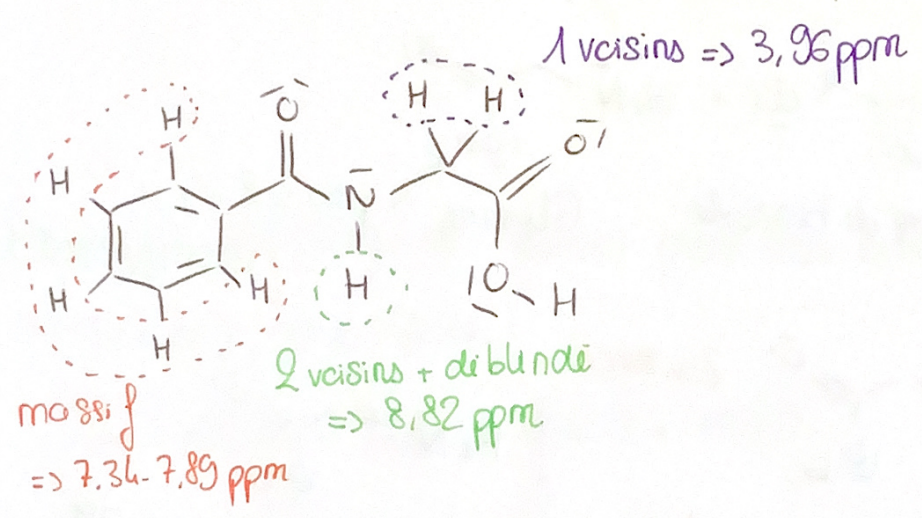 1 voisins => 3,96 ppm
H
H H
O
O
H
N
H
H
H
O H
H
H
2 voisins + déblindé
=> 8,82 ppm
massif
=> 7,34-7,89 ppm